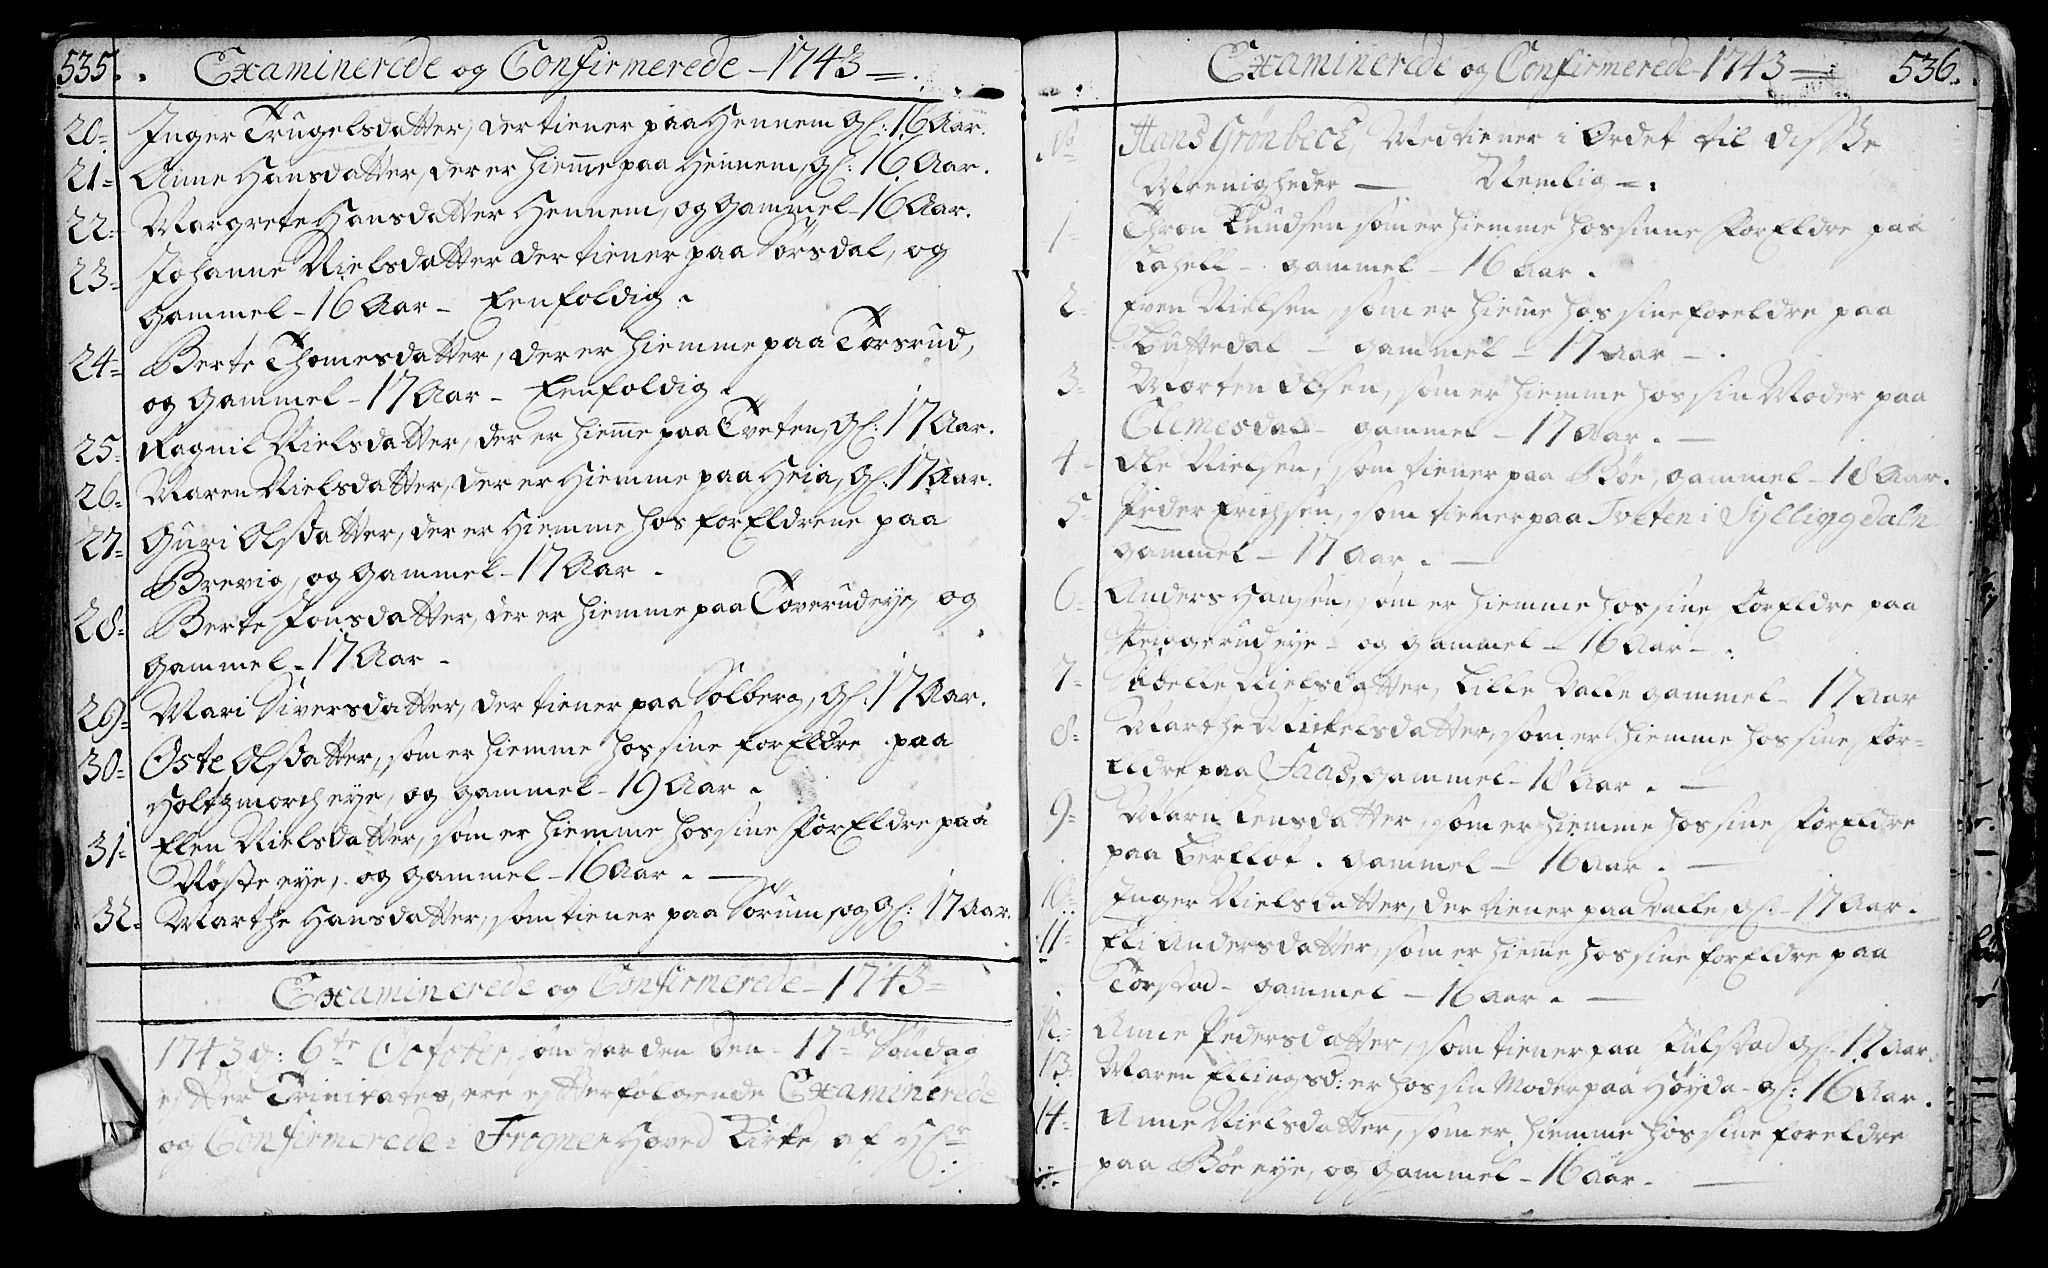 535. Examinerede og Confirmerede - 1743 -
20= Inger Trugelsdatter, der tiener paa Hennem gl: 16 Aar.
21= Anne Hansdatter, der er hiem̄e paa Hennem, gl: 16 Aar.
22= Margrete Hansdatter Hennem, og gammel - 16 Aar.
23= Johanne Nielsdatter der tiener paa Sørsdal, og
gammel - 16 Aar - Eenfoldig.
24= Berte Thomesdatter, der er hiemme paa Torsrud,
og gammel - 17 Aar - Eenfoldig.
25= Ragnil Nielsdatter, der er hiem̄e paa Tveten, gl: 17 Aar.
26= Maren Nielsdatter, der er hiemme paa Heia, gl: 17 Aar.
27= Guri Olsdatter, der er hiemme hos forEldrene paa
Brevig, og gammel - 17 Aar.
28= Berte Jonsdatter, der er hiemme paa Toverudeye, og
gammel - 17 Aar -
29= Mari Siversdatter, der tiener paa Solberg, gl: 17 Aar.
30= Oste Olsdatter, som er hiemme hos sine forEldre paa
Holtzmorch eye, og gammel - 19 Aar.
31= Elen Nielsdatter, som er hiemme hos sine forEldre paa
Røste eye, og gammel - 16 Aar. -
32= Marthe Hansdatter, som tiener paa Sørum, og gl: 17 Aar.
Examinerede og Confirmerede - 1743 =
1743 d: 6te October, som var den Den - 17de Søndag
efter Trinitates, ere efterfølgende Examinerede
og Confirmerede i Frogner Hoved Kirke, af Hr
Examinerede og Confirmerede - 1743 - 536.
No Hans Grønbeck, Medtiener i Ordet til disse
Meenigheder - Nemlig -:
1= Thron Knudsen som er hiemme hos sinne forEldre paa
Lahell - gammel - 16 Aar.
2= Even Nielsen, som er hiem̄e hos sine foreldre paa
Luttedal - gammel - 17 Aar -.
3= Morten Olsen, som er hiemme hos sin Moder paa
Clemesdal - gammel - 17 Aar. -
4= Ole Nielsen, som tiener paa Bøe, gammel - 18 Aar.
5= Peder Erichsen, som tiener paa Tveten i Sylliggdaln
gammel - 17 Aar. -
6= Anders Hansen, som er hiemme hos sine forEldre paa
eye - og gammel - 16 Aar -.
7= Sibelle Nielsdatter, Lille Valle gammel - 17 Aar
8= Marthe Mickelsdatter, som er hiemme hos sine for=
Eldre paa Faas, gammel - 18 Aar. -
9= Marn Jensdatter, som er hiemme hos sine forEldre
paa Berflot. gammel - 16 Aar. -
10= Inger Nielsdatter, der tiener paa Valle, gl: - 17 Aar.
11= Eli Andersdatter, som er hiem̄e hos sine forEldre paa
Torstad - gammel - 16 Aar. -
12= Anne Pedersdatter, som tiener paa Julstad gl: 17 Aar.
13= Maren Ellingsd: er hos sin Moder paa Høyda - gl: 16 Aar.
14= Anne Nielsdatter, som er hiemme hos sine foreldre
paa Bøe eye, og gammel - 16 Aar. -